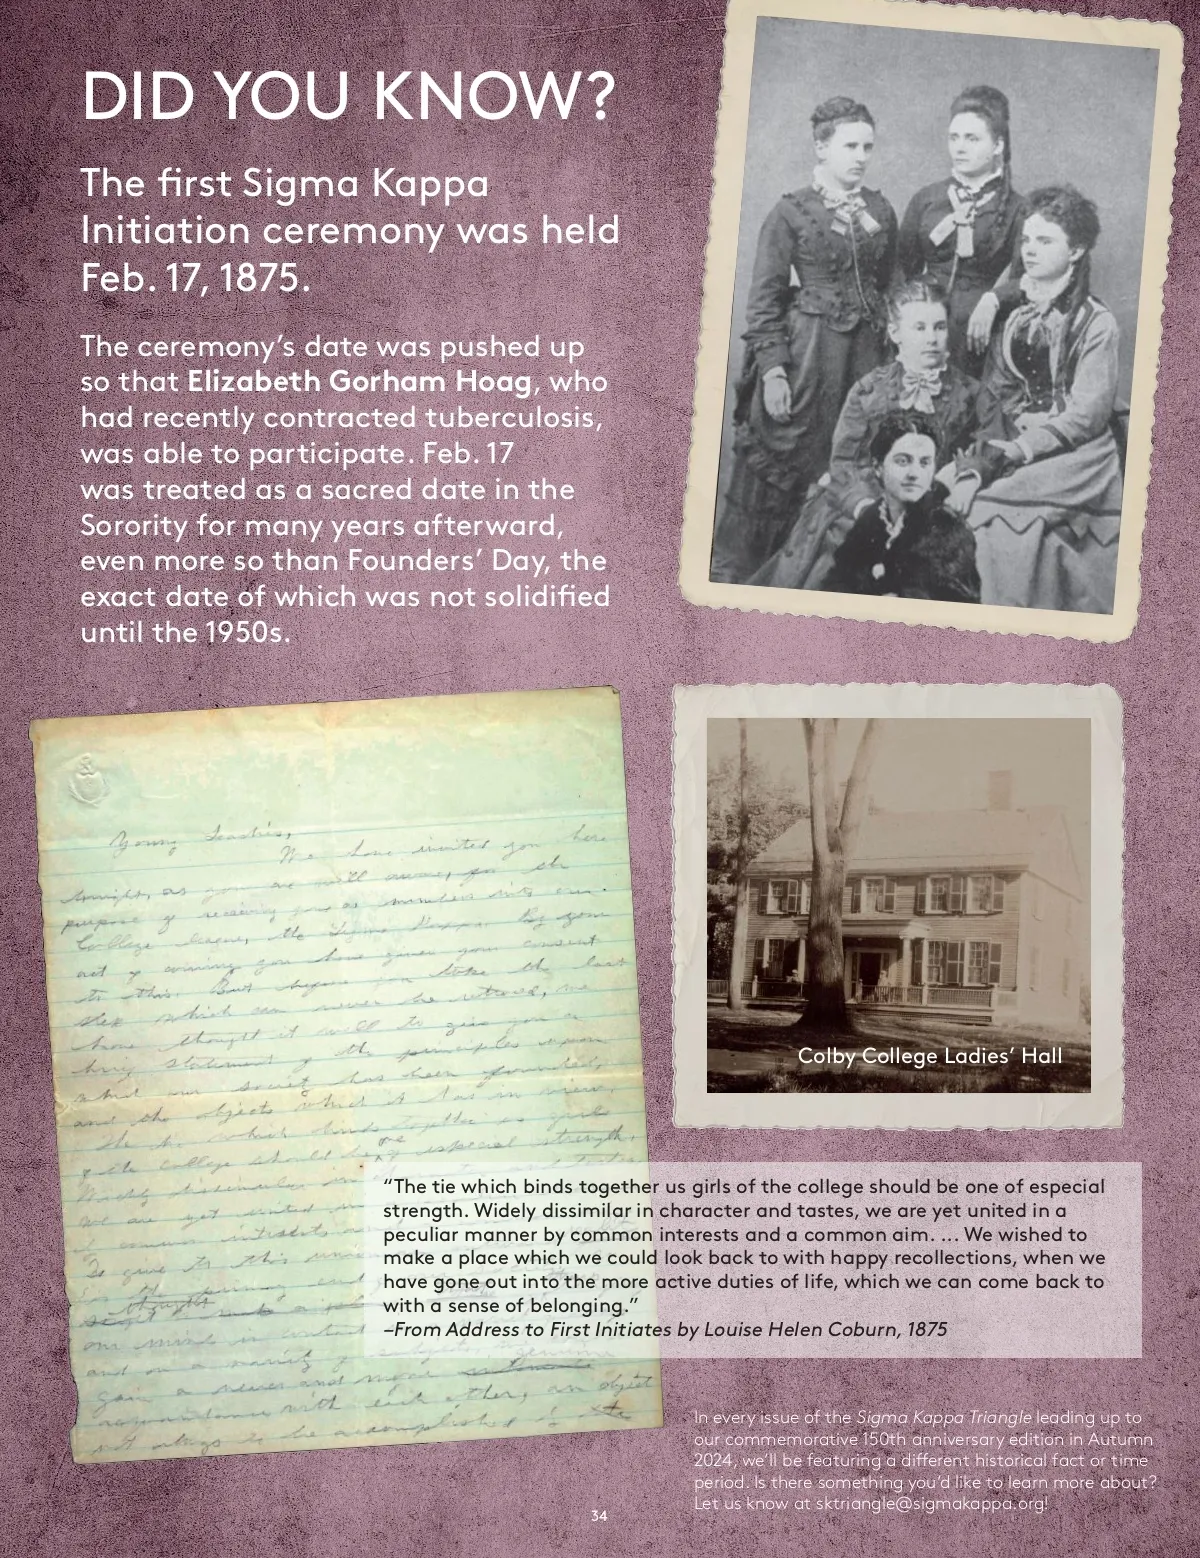 DID YOU KNOW?
The first Sigma Kappa
Initiation ceremony was held
Feb. 17, 1875.
The ceremony's date was pushed up
so that Elizabeth Gorham Hoag, who
had recently contracted tuberculosis,
was able to participate. Feb. 17
was treated as a sacred date in the
Sorority for many years afterward,
even more so than Founders' Day, the
exact date of which was not solidified
until the 1950s.
We have invited you here
tonight, as you are well aware, for the
purpose of receiving you as members into our
College league, the Sigma Kappa. By your
act of coming you have given your consent
to this. But before you take the last
step which can never be retraced, we
have thought it well to give you a
brief statement of the principles upon
which our society has been founded,
and the objects which it has in view.
The tie which binds together us girls
of the college should be one of especial strength.
Widely dissimilar in
we are yet united in
common interests
To give to this
our minds in contact
and
gain a newer and more
acquaintance with each other, an object
not always to be accomplished in the
Colby College Ladies' Hall
"The tie which binds together us girls of the college should be one of especial
strength. Widely dissimilar in character and tastes, we are yet united in a
peculiar manner by common interests and a common aim. ... We wished to
make a place which we could look back to with happy recollections, when we
have gone out into the more active duties of life, which we can come back to
with a sense of belonging."
–From Address to First Initiates by Louise Helen Coburn, 1875
In every issue of the Sigma Kappa Triangle leading up to
our commemorative 150th anniversary edition in Autumn
2024, we'll be featuring a different historical fact or time
period. Is there something you'd like to learn more about?
Let us know at sktriangle@sigmakappa.org!
34